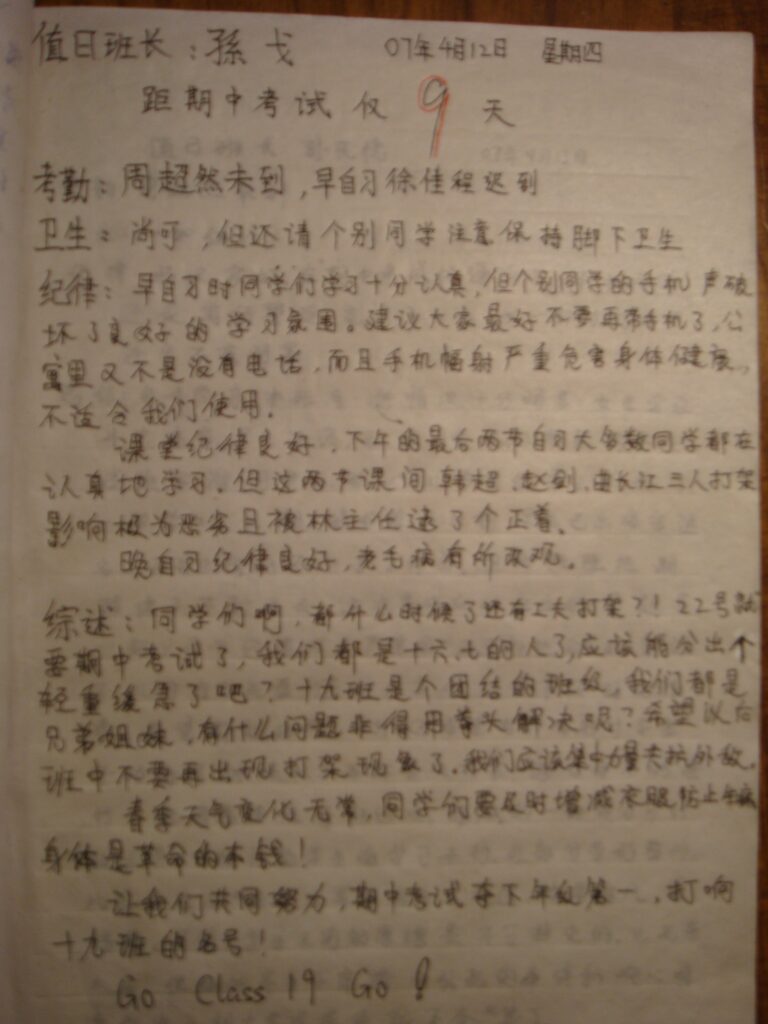 值日班长：孙戈 07年4月12日 星期四
距期中考试仅 9 天
考勤：周超然未到，早自习徐佳程迟到
卫生：尚可，但还请个别同学注意保持脚下卫生
纪律：早自习时同学们学习十分认真，但个别同学的手机声破
坏了良好的学习氛围。建议大家最好不要再带手机了，公
寓里又不是没有电话，而且手机辐射严重危害身体健康，
不适合我们使用。
课堂纪律良好，下午的最后两节自习大多数同学都在
认真地学习。但这两节课间韩超、赵剑、曲长江三人打架
影响极为恶劣且被林主任逮了个正着。
晚自习纪律良好，老毛病有所改观。
综述：同学们啊，都什么时候了还有工夫打架？！22号就
要期中考试了，我们都是十六、七的人了，应该能分出个
轻重缓急了吧？十九班是个团结的班级，我们都是
兄弟姐妹，有什么问题非得用拳头解决呢？希望以后
班中不要再出现打架现象了，我们应该集中力量去抗外敌。
春季天气变化无常，同学们要及时增减衣服防止生病
身体是革命的本钱！
让我们共同努力，期中考试夺下年级第一，打响
十九班的名号！
Go Class 19 Go！